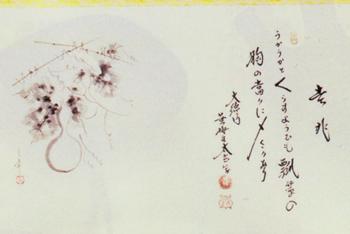 吉兆
うかうかとくらすようでも瓢箪の
胸の当りに〆くゝりあり
大徳寺